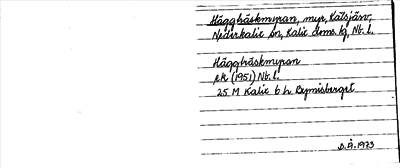 Häggbäskmyran, myr, Katsjärv,
Nederkalix sn, Kalix doms. tg, Nb. l.
Häggbäskmyran
ek (1951) Nb. l.
25 M Kalix 6 h Rymisberget
D.Å. 1973